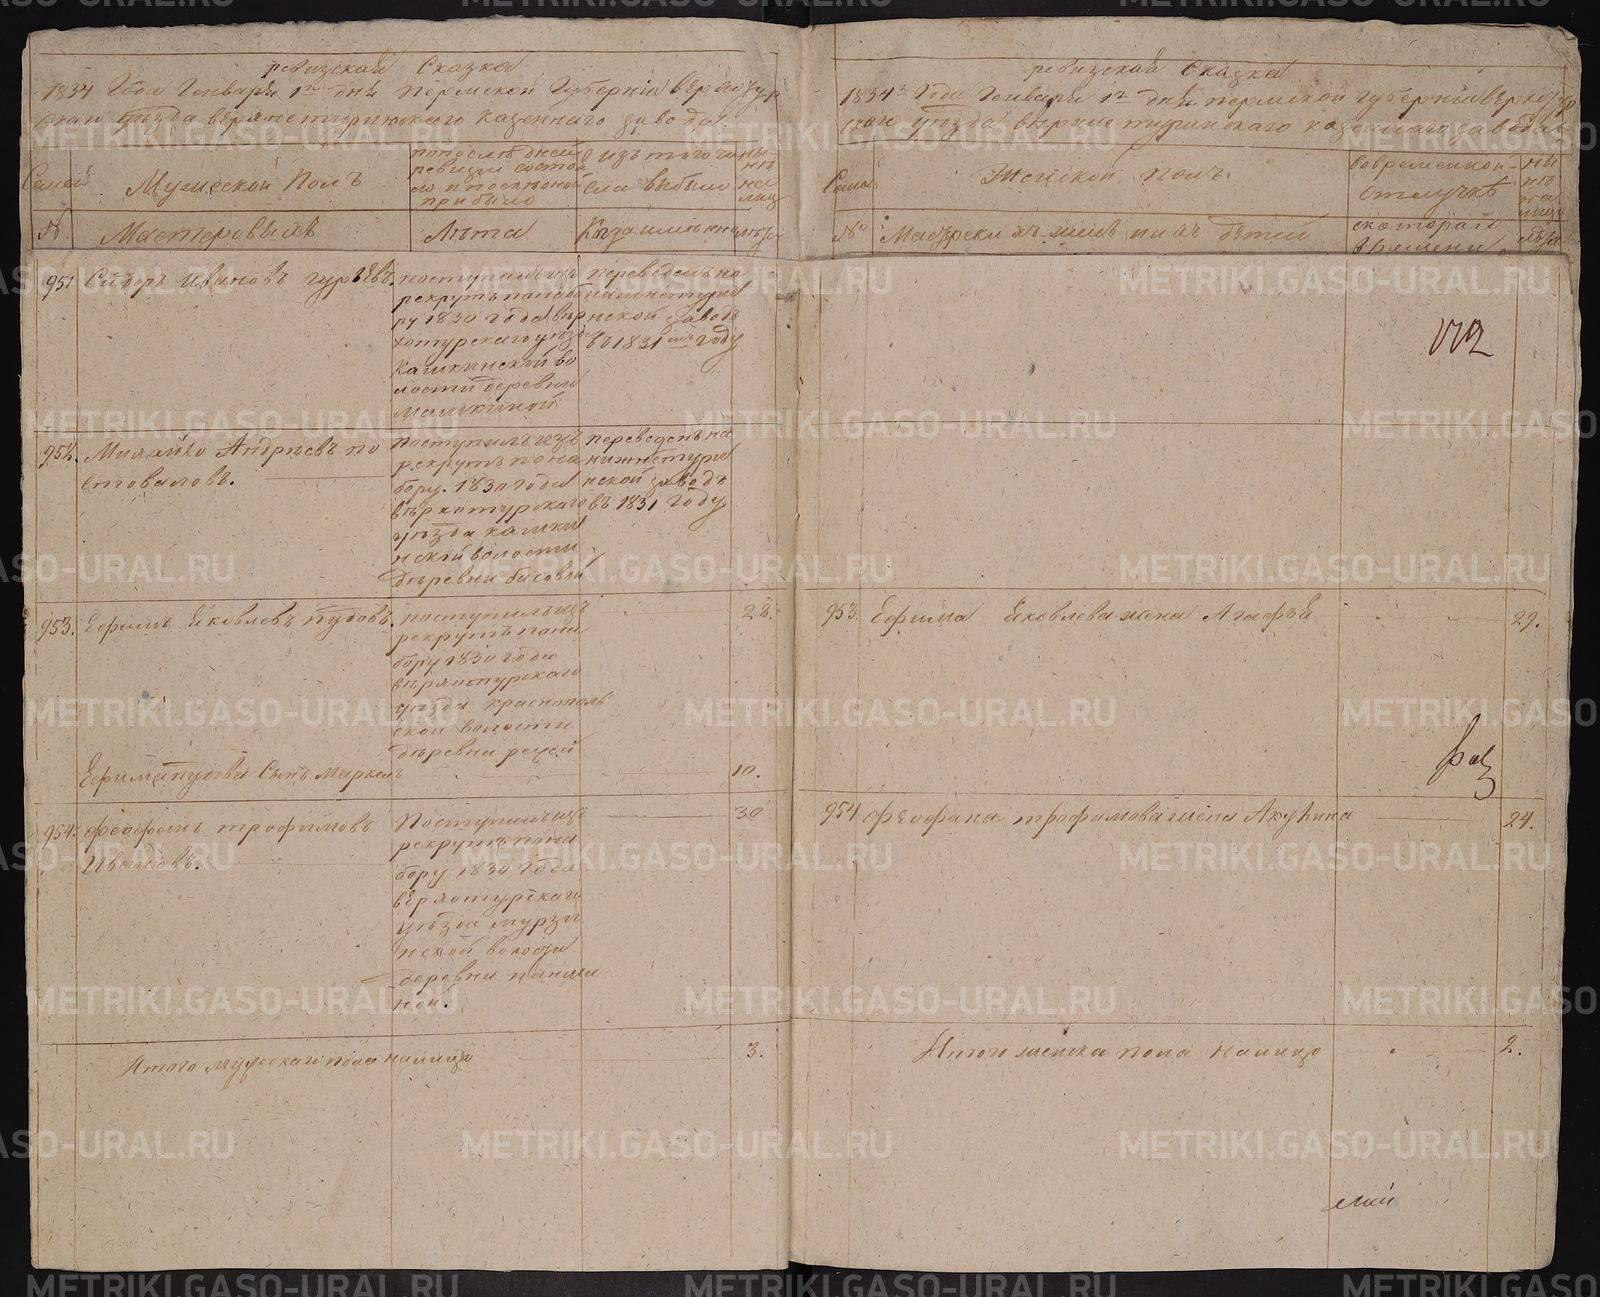 ревизской Сказка
1834 Года Генваря 1го дня Пермской Губернiи верхотур
скаи уѣзда верхнетуринскаго казеннаго завода.
Семей
Мужеской Полъ
по последней
ревизiи состоя
ло и послѣоной
прибыло
изтого чи
сла выбыло
ны
нѣ
на
лиц
№
Мастеровыхъ
Лѣта
Когда имянно
лѣта
951
Сидоръ Ивановъ Гурьевъ
поступилъ изъ
рекрутъ по набо
ру 1830 года вер
хотурскаго уѣзд
Кашкинской во
лости деревни
Малыкиной
переведенъ на
нижнетури
нской заводъ
въ 1831 мъ году
952.
Михайло Андрѣевъ по
стоваловъ.
поступилъ изъ
рекрутъ по на
бору 1830 года
верхотурскаго
уѣзда Кашки
нской волости
дѣревни басовой
переведенъ на
нижнетури
нской заводъ
въ 1831 году
953.
Ефимъ Яковлевъ Пудовъ.
поступилъ изъ
рекрутъ по на
бору 1830 года
верхотурскаго
уѣзда краснополь
ской волости
дѣревни рѣчей
28.
Ефима Пудова Сынъ Маркелъ
10.
954.
Феофанъ трофимовъ
Ивановъ.
Поступилъ изъ
рекрутъ по на
бору 1830 года
верхотурскаго
уѣзда мурзи
нской волости
деревни паньши
ной.
30
Итого мужескаго пола налицо
3.
ревизской Сказка
1834го Года Генваря 1го дня пермской губернiи верхотур
ской уѣзда верхнетуринскаго казеннаго завода
Семей
Женской полъ
вовременной
отлучкѣ
ны
нѣ
на
лицо
№
Мастерски хъ жонъ и ихъ дѣтей
скоторай
времени
лѣта
953.
Ефима Яковлева жена Агафья
29.
954.
Феофана трофимова жена Акулина
24.
Итого женска пола налицо
2.
METRIKI.GASO-URAL.RU